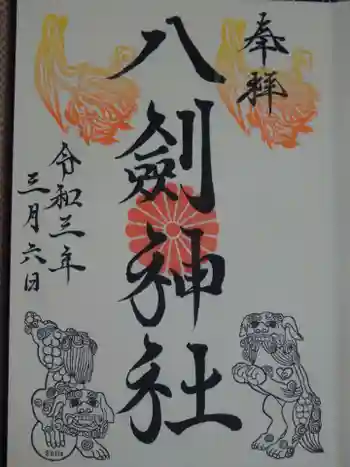 奉拝
八剱神社
令和三年
三月六日